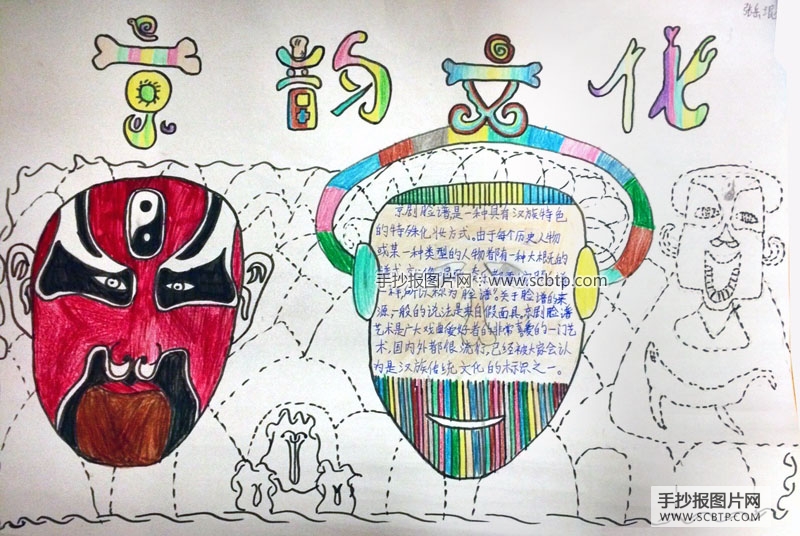 京韵文化
京剧脸谱,是一种具有汉族特色
的特殊化妆方式。由于每个历史人物
或某一种类型的人物都有一种大概的
手抄报图片网:www.scbtp.com
一样,所以称为"脸谱"。关于脸谱的来
源,一般的说法是来自假面具。京剧脸谱
艺术是广大戏曲爱好者的非常喜爱的一门艺
术,国内外都很流行,已经被大家会认
为是汉族传统文化的标识之一。
手抄报图片网
WWW.SCBTP.COM